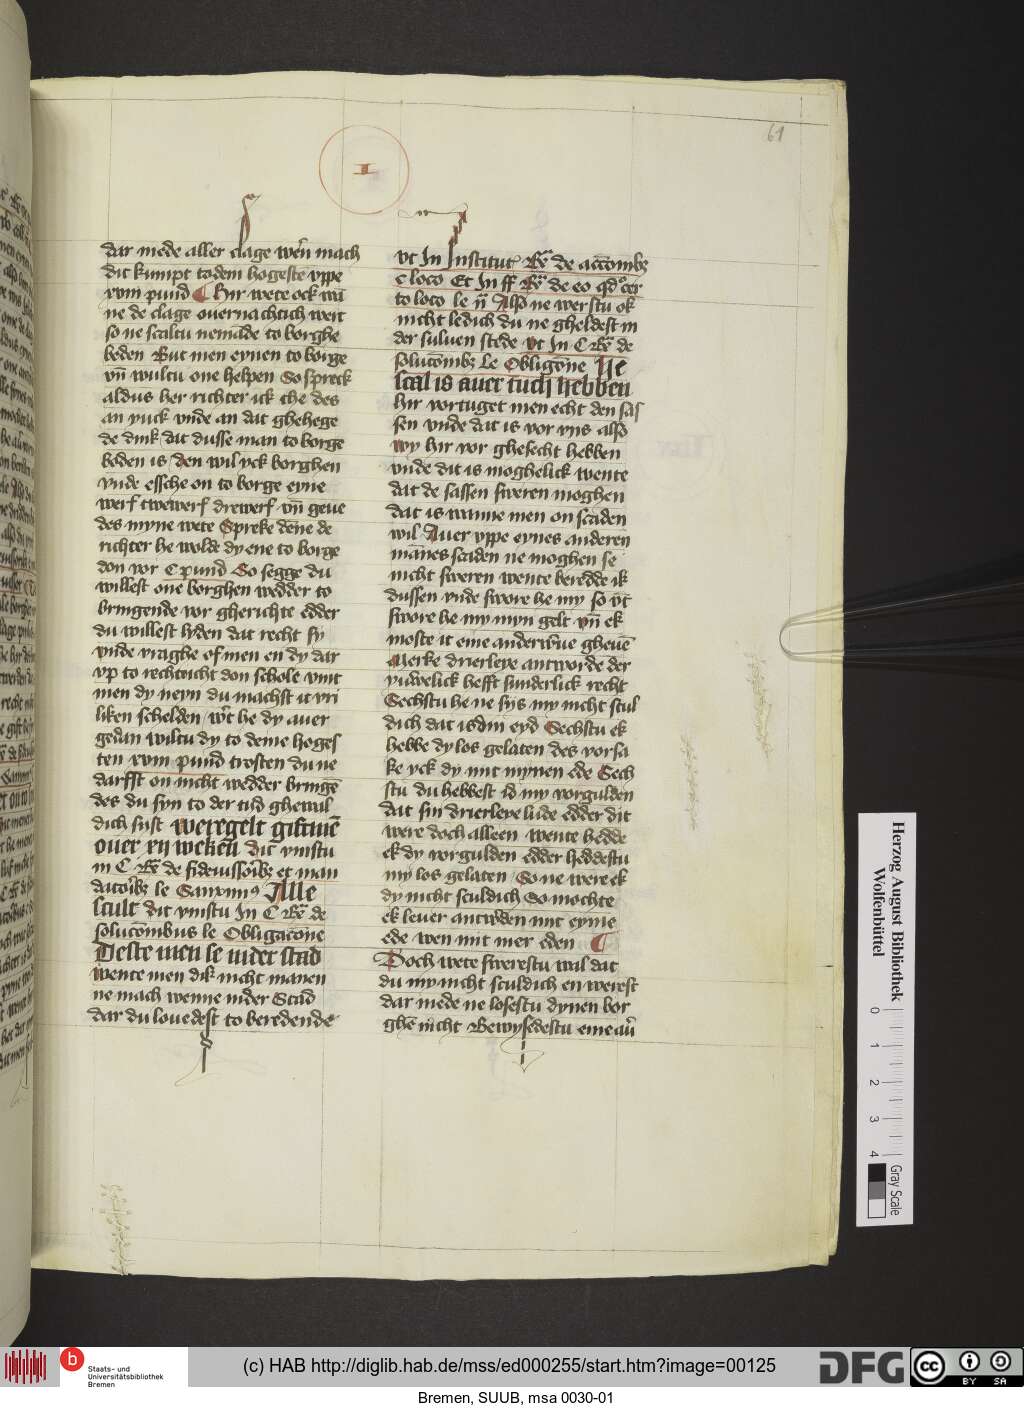 61
I
dar mede aller clage wen̄ mach
dit kumpt to dem hogesten vppe
xvm pund ¶ Hir wete ock wā
ne de clage ouernachtich wert
so ne scaltu nemāde to borghe
beden But men eynen to borge
vn̄ wultu one helpen So spreck
aldus her richter ick the des
an yuck vnde an dat ghehege
de dink dat dusse man to borge
boden is den wil yck borghen
vnde essche on to borge eyne
werf twewerf drewerf vn̄ geue
des myne wete Spreke dēne de
richter he wolde dy ene to borge
don vor C pund So segge du
willest one borghen wedder to
bringende vor gherichte edder
du willest lyden dat recht sy
vnde vraghe of men en dy dar
vp to rechticht don schole vint
men dy neyn du machst it vri
liken schelden wt he dy auer
gedan wiltu dy to deme hoges
ten xvm pund trosten du ne
darfft on nicht wedder bringē
des du syn to der tid ghewil
dich sust weregelt giftmē
ouer xij weken dit vinstu
in C Re de fideiussoribꝫ et man
datoribꝫ le Sanximꝰ Alle
scult dit vinstu In C Re de
solucombus le Obligacōne
Deste men se inder stad
wente men dik nicht manen
ne mach wenne inder Stad
dar du louedest to beredende
vt In Institut Re de actombꝫ
c loco Et In ff Re de eo qd cer
to loco le ij Also ne werstu ok
nicht ledich du ne gheldest in
der suluen stede vt In C Re de
solucombꝫ Le Obligōne Ne
scal is auer tuch hebben
hir vortuget men echt den sas
sen vnde dat is vor vns also
wy hir vor ghesecht hebben
vnde dit is moghelick wente
dat de sassen sweren moghen
dat is wanne men on scaden
wil Auer vppe eynes anderen
mānes scaden ne moghen se
nicht sweren wente beredde ik
dussen vnde swore he my so vt
swore he my myn gelt vn̄ ek
moste it eme anderwue gheuē
Merke drierleye antworde der
yuwelick hefft sunderlick recht
Sechstu he ne sys my nicht scul
dich dat is din eyd Sechstu ek
hebbe dy los gelaten des vorsa
ke yck dy mit mynen ede Sech
stu du hebbest id my vorgulden
dat sin drierleye lude edder dit
were doch alleen wente hedde
ek dy vorgulden edder heddestu
my los gelaten So ne were ek
dy nicht sculdich So mochte
ek leuer antwden mit eyme
ede wen mit mer eden ¶
Doch wete swerestu wal dat
du my nicht sculdich en werest
dar mede ne losestu dynen bor
ghē nicht Bewysedestu eme auī
Herzog August Bibliothek
Wolfenbüttel
0 1 2 3 4
Gray Scale
b Staats- und
Universitätsbibliothek
Bremen
(c) HAB http://diglib.hab.de/mss/ed000255/start.htm?image=00125
DFG
cc BY SA
Bremen, SUUB, msa 0030-01